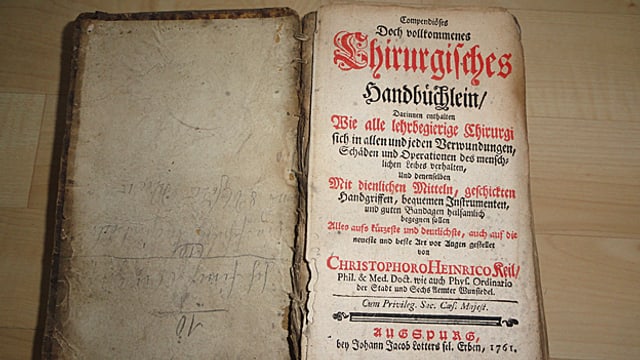 Compendiöses
Doch vollkommenes
Chirurgisches
Handbüchlein/
Darinnen enthalten
Wie alle lehrbegierige Chirurgi
sich in allen und jeden Verwundungen,
Schäden und Operationen des mensch-
lichen Leibes verhalten,
und denenselben
Mit dienlichen Mitteln, geschickten
Handgriffen, bequemen Instrumenten,
und guten Bandagen heilsamlich
begegnen sollen
Alles aufs kürzeste und deutlichste, auch auf die
neueste und beste Art vor Augen gestellet
von
CHRISTOPHORO HEINRICO Keil/
Phil. & Med. Doct. wie auch Phys. Ordinario
der Stadt und Sechs Aemter Wunsiedel.
Cum Privileg. Sac. Cæs. Majest.
AUGSPURG,
bey Johann Jacob Lotters sel. Erben, 1761.
10